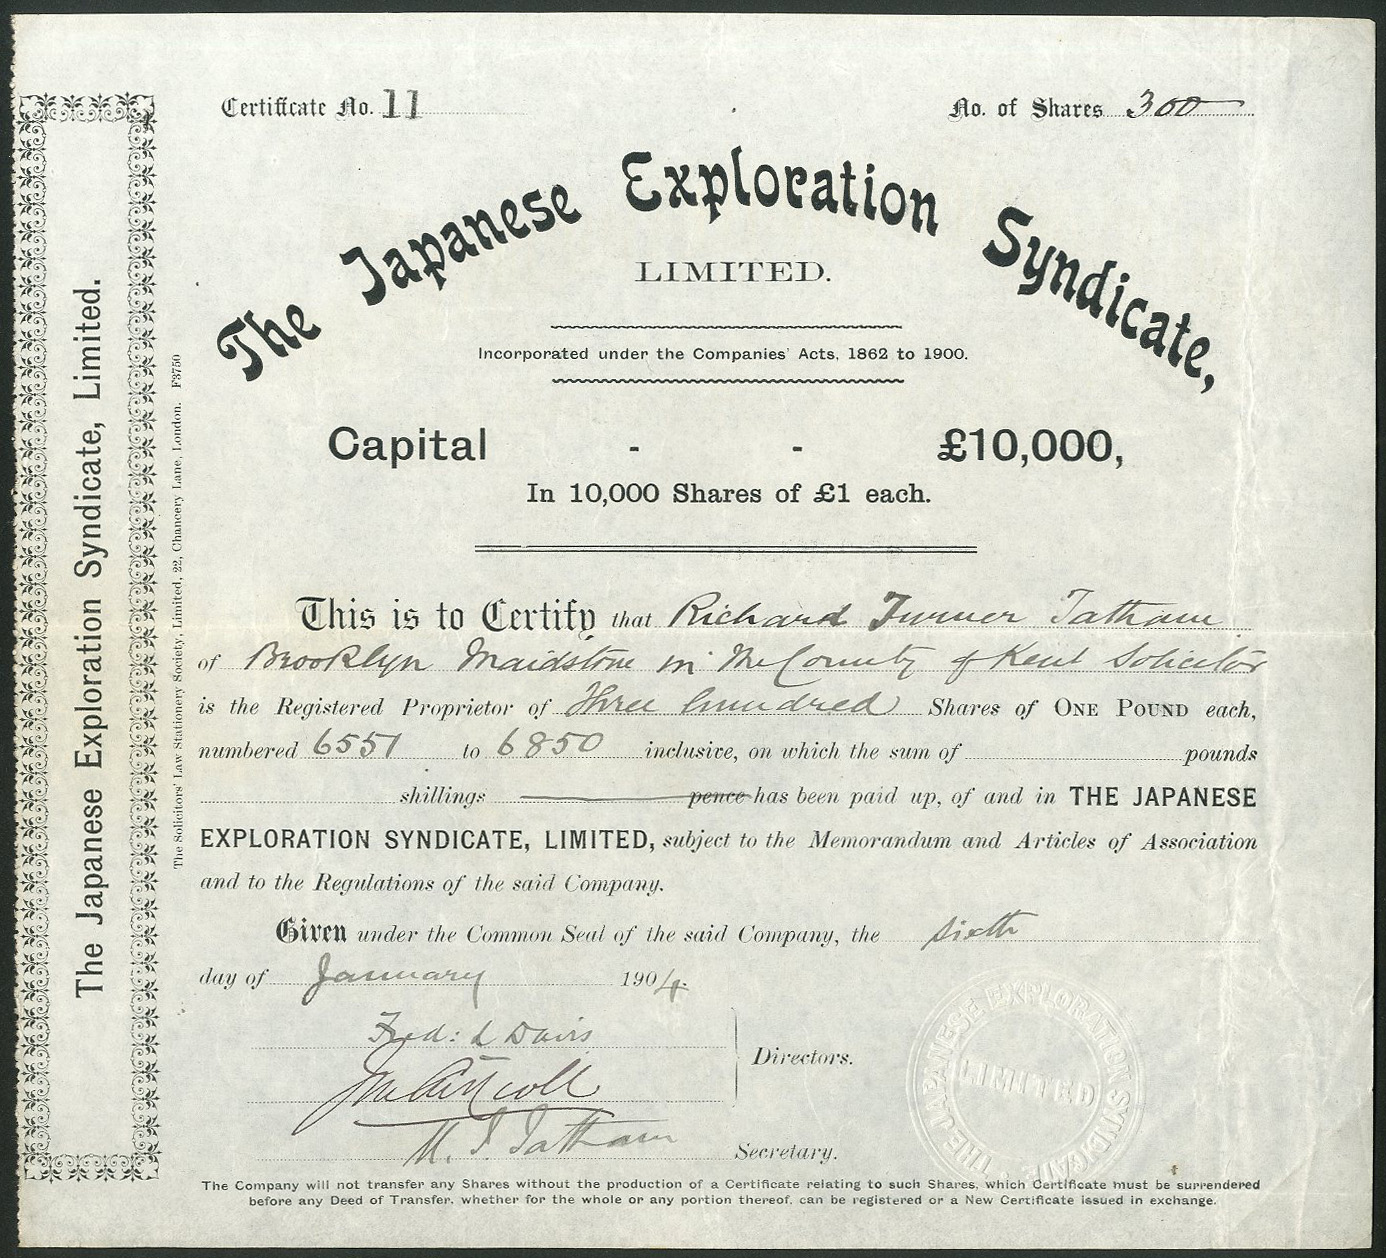 Certificate No. 11
No. of Shares 300
The Japanese Exploration Syndicate,
LIMITED.
Incorporated under the Companies' Acts, 1862 to 1900.
Capital - - £10,000,
In 10,000 Shares of £1 each.
This is to Certify that Richard Turner Tatham
of Brooklyn Maidstone in the County of Kent Solicitor
is the Registered Proprietor of Three hundred Shares of ONE POUND each,
numbered 6551 to 6850 inclusive, on which the sum of pounds
shillings pence has been paid up, of and in THE JAPANESE
EXPLORATION SYNDICATE, LIMITED, subject to the Memorandum and Articles of Association
and to the Regulations of the said Company.
Given under the Common Seal of the said Company, the sixth
day of January 1904.
Fred: L Davis
Directors.
Tatham
Secretary.
THE JAPANESE EXPLORATION SYNDICATE
LIMITED
The Company will not transfer any Shares without the production of a Certificate relating to such Shares, which Certificate must be surrendered
before any Deed of Transfer, whether for the whole or any portion thereof, can be registered or a New Certificate issued in exchange.
The Japanese Exploration Syndicate, Limited.
The Solicitors' Law Stationery Society, Limited, 22, Chancery Lane, London. F3750